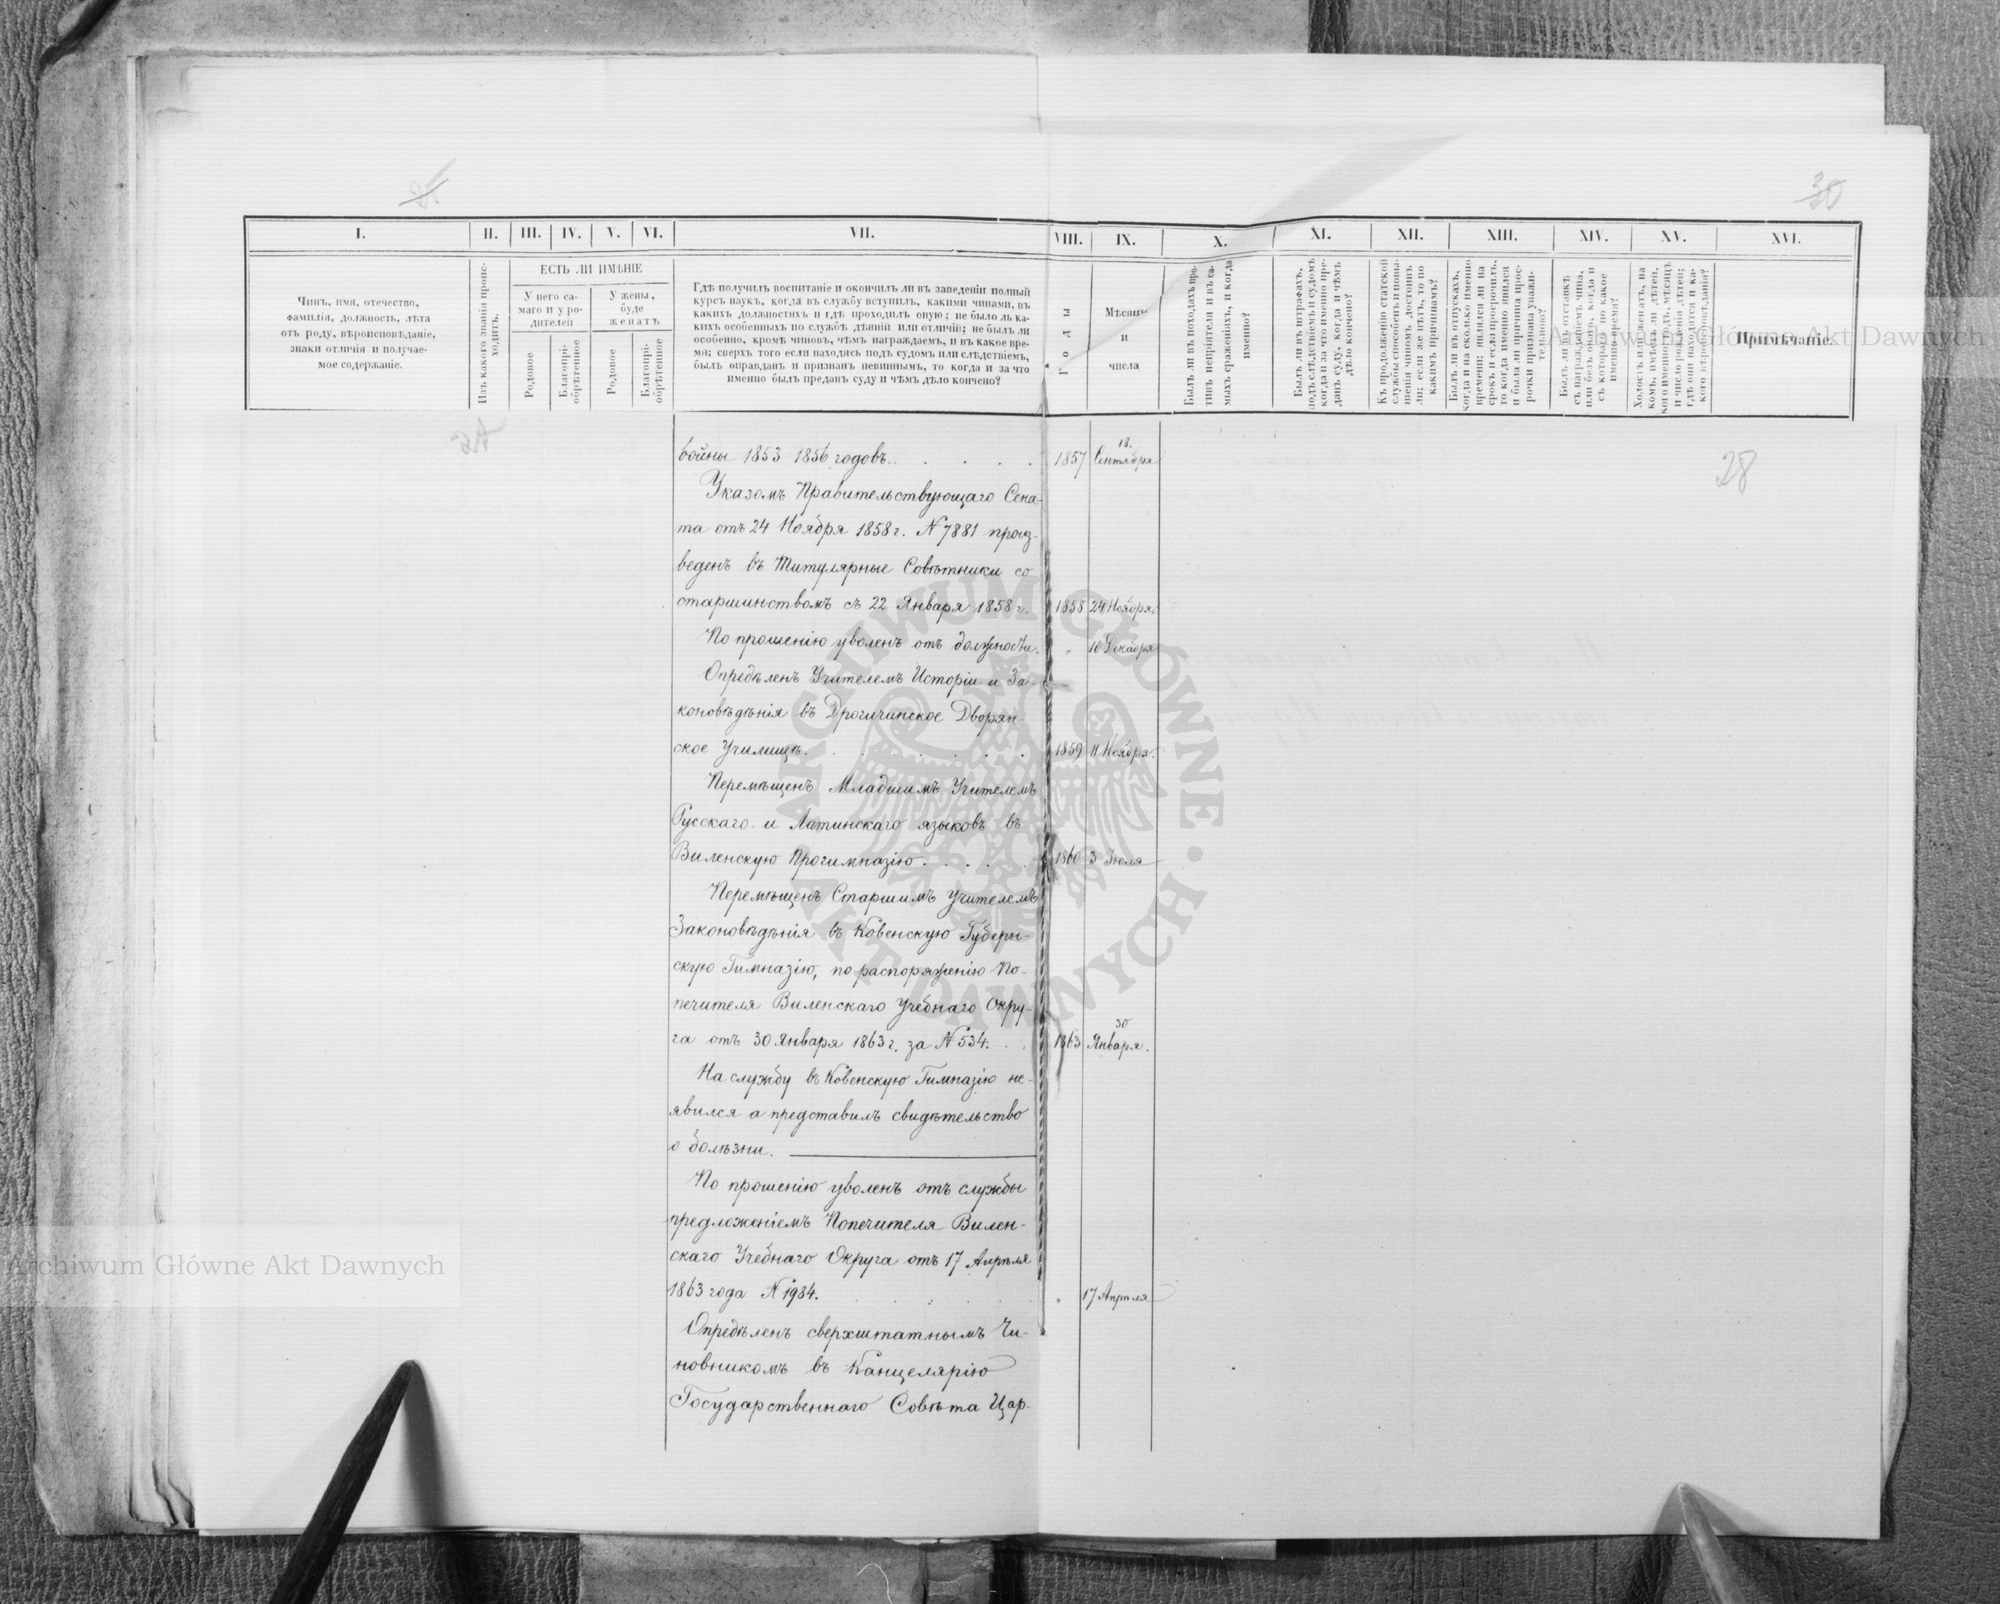 25
30
I.
II.
III.
IV.
V.
VI.
VII.
VIII.
IX.
X.
XI.
XII.
XIII.
XIV.
XV.
XVI.
Чинъ, имя, отечество,
фамилія, должность, лѣта
отъ роду, вѣроисповѣданіе,
знаки отличія и получае-
мое содержаніе.
Изъ какого званія проис-
ходитъ.
ЕСТЬ ЛИ ИМѢНІЕ
У него са-
маго и у ро-
дителей
У жены,
буде
женатъ
Родовое
Благопрі-
обрѣтенное
Родовое
Благопрі-
обрѣтенное
Гдѣ получилъ воспитаніе и окончилъ ли въ заведеніи полный
курсъ наукъ, когда въ службу вступилъ, какими чинами, въ
какихъ должностяхъ и гдѣ проходилъ оную; не было ль ка-
кихъ особенныхъ по службѣ дѣяній или отличій; не былъ ли
особенно, кромѣ чиновъ, чѣмъ награждаемъ, и въ какое вре-
мя; сверхъ того если находясь подъ судомъ или слѣдствіемъ,
былъ оправданъ и признанъ невиннымъ, то когда и за что
именно былъ преданъ суду и чѣмъ дѣло кончено?
Годы
Мѣсяцы
и
числа
Былъ ли въ походахъ про-
тивъ непріятеля и въ са-
мыхъ сраженіяхъ, и когда
именно?
Былъ ли въ штрафахъ,
подъ слѣдствіемъ и судомъ
когда и за что именно пре-
данъ суду, когда и чѣмъ
дѣло кончено?
Къ продолженію статской
службы способенъ и повы-
шенія чиномъ достоинъ
ли; если же нѣтъ, то по
какимъ причинамъ?
Былъ ли въ отпускахъ,
когда и на сколько именно
времени; явился ли на
срокъ и если просрочилъ,
то когда именно явился
и была ли причина прос-
рочки признана уважи-
тельною?
Былъ ли въ отставкѣ
съ награжденіемъ чина,
или безъ онаго, когда и
съ котораго по какое
именно время?
Холостъ или женатъ, на
комъ, имѣетъ ли дѣтей,
кого именно; годъ, мѣсяцъ
и число рожденія дѣтей;
гдѣ они находятся и ка-
кого вѣроисповѣданія?
Примѣчаніе.
28
войны 1853 1856 годовъ. 1857 18. Сентября
Указомъ Правительствующаго Сена-
та отъ 24 Ноября 1858 г. № 7881 произ-
веденъ въ Титулярные Совѣтники со
старшинствомъ съ 22 Января 1858 г. 1858 24 Ноября.
По прошенію уволенъ отъ должности. " 10 Декабря
Опредѣленъ Учителемъ Исторіи и За-
коновѣдѣнія въ Дрогичинское Дворян-
ское Училище. 1859 11 Ноября.
Перемѣщенъ Младшимъ Учителемъ
Русскаго и Латинскаго языковъ въ
Виленскую Прогимназію. 1860 3 Іюля
Перемѣщенъ Старшимъ Учителемъ
Законовѣдѣнія въ Ковенскую Губерн-
скую Гимназію, по распоряженію По-
печителя Виленскаго Учебнаго Окру-
га отъ 30 Января 1863 г. за № 534. 1863 30 Января.
На службу въ Ковенскую Гимназію не-
явился а представилъ свидѣтельство
о болѣзни.
По прошенію уволенъ отъ службы
предложеніемъ Попечителя Вилен-
скаго Учебнаго Округа отъ 17 Апрѣля
1863 года № 1984. " 17 Апрѣля
Опредѣленъ сверхштатнымъ Чи-
новникомъ въ Канцелярію
Государственнаго Совѣта Цар-
Archiwum Główne Akt Dawnych
Archiwum Główne Akt Dawnych
ARCHIWUM GŁÓWNE AKT DAWNYCH